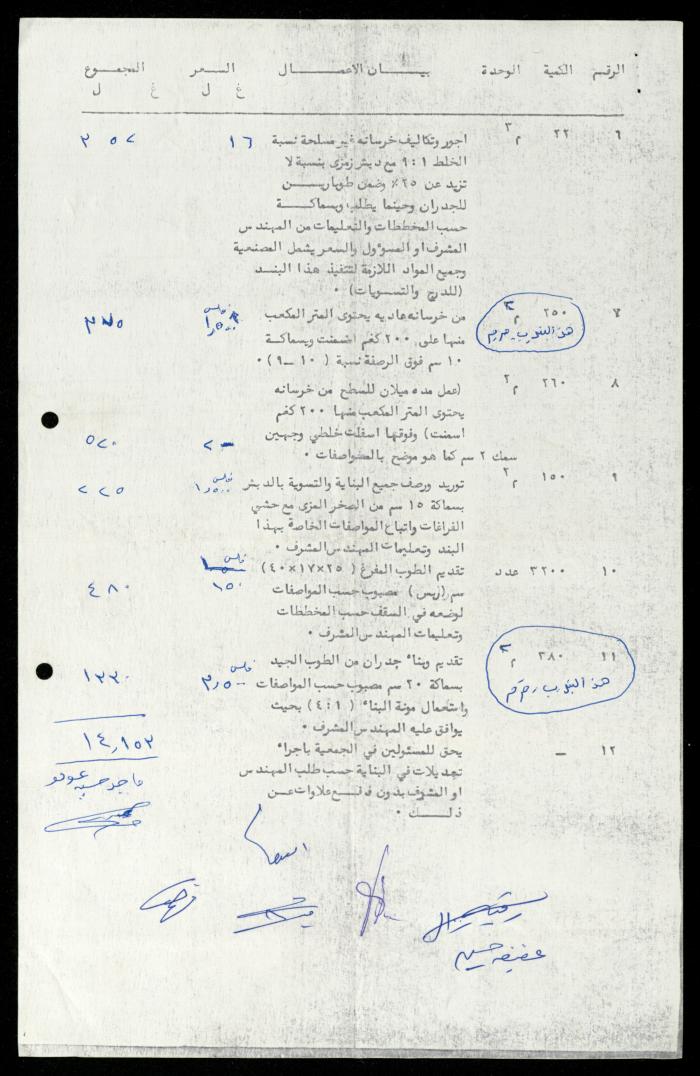 الرقم الكمية الوحدة بيـــان الاعمـــال السـعر المجمـــوع
غ ل غ ل
٦ ٢٢ م٣ اجور وتكاليف خرسانه غير مسلحة نسبة ١٦ ٣٥٢
الخلط ١:٩ مع دبش زمزى بنسبة لا
تزيد عن ٢٥٪ وضمن طوبار يـــن
للجدران وحيثما يطلب وبسماكـــة
حسب المخططات والتعليمات من المهندس
المشرف او المسؤول والسعر يشمل المصنعية
وجميع المواد اللازمة لتنفيذ هذا البنـــد
(للدرج والتسويات) ٠
٧ ٢٥٠ م٢ من خرسانه عاديه يحتوى المتر المكعب ١٫٥٠٠ فلس ٣٧٥
منها على ٢٠٠ كغم اسمنت وبسماكة
١٠ سم فوق الرصفة نسبة (١٠ــ٩) ٠
٨ ٢٦٠ م٢ (عمل مده ميلان للسطح من خرسانه
يحتوى المتر المكعب منها ٢٠٠ كغم
اسمنت) وفوقها اسفلت خلطي وجهين ٢ــ ٥٢٠
سمك ٢ سم كما هو موضح بالمواصفات ٠
٩ ١٥٠ م٢ توريد ورصف جميع البناية والتسوية بالدبش ١٫٥٠٠ فلس ٢٢٥
بسماكة ١٥ سم من الصخر المزى مع حشي
الفراغات واتباع المواصفات الخاصة بهذا
البند وتعليمات المهندس المشرف ٠
١٠ ٣٢٠٠ عدد تقديم الطوب المفرغ (٢٥×١٧×٤٠) فلس
سم (ربس) مصبوب حسب المواصفات ١٥٠ ٤٨٠
لوضعه في السقف حسب المخططات
وتعليمات المهندس المشرف ٠
١١ ٣٨٠ م٢ تقديم وبناء جدران من الطوب الجيد
بسماكة ٢٠ سم مصبوب حسب المواصفات ٣٫٥٠٠ فلس ١٣٣٠
واستعمال مونة البناء (٤:١) بحيث
يوافق عليه المهندس المشرف ٠
١٢ ــ يحق للمسئولين في الجمعية باجراء ١٤٫١٥٣
تعديلات في البناية حسب طلب المهندس
او المشرف بدون دفـــع علاوات عـــن
ذلـــك ٠
عفيفه حسين